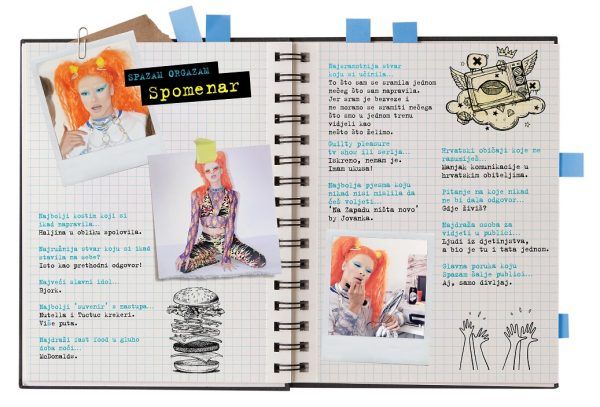 SPAZAM ORGAZAM
Spomenar
Najbolji kostim koji si
ikad napravila...
Haljina u obliku spolovila.
Najružnija stvar koju si ikad
stavila na sebe?
Isto kao prethodni odgovor!
Najveći slavni idol...
Bjork.
Najbolji 'suvenir' s nastupa...
Nutella i Tuctuc krekeri.
Više puta.
Najdraži fast food u gluho
doba noći...
McDonalds.
Najsramotnija stvar
koju si učinila...
To što sam se sramila jednom
nečeg što sam napravila.
Jer sram je bezveze i
ne moramo se sramiti nečega
što smo u jednom trenu
vidjeli kao
nešto što želimo.
Guilty pleasure
tv show ili serija...
Iskreno, nemam je.
Imam ukusa!
Najbolja pjesma koju
nikad nisi mislila da
ćeš voljeti...
'Na Zapadu ništa novo'
by Jovanka.
Hrvatski običaji koje ne
razumiješ...
Manjak komunikacije u
hrvatskim obiteljima.
Pitanje na koje nikad
ne bi dala odgovor...
Gdje živiš?
Najdraža osoba za
vidjeti u publici...
Ljudi iz djetinjstva,
a bio je tu i tata jednom.
Glavna poruka koju
Spazam šalje publici...
Aj, samo divljaj.